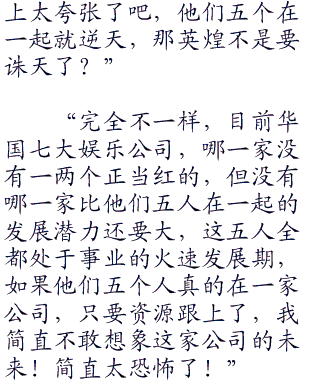 上太夸张了吧，他们五个在
一起就逆天，那英煌不是要
诛天了？”
“完全不一样，目前华
国七大娱乐公司，哪一家没
有一两个正当红的，但没有
哪一家比他们五人在一起的
发展潜力还要大，这五人全
都处于事业的火速发展期，
如果他们五个人真的在一家
公司，只要资源跟上了，我
简直不敢想象这家公司的未
来！简直太恐怖了！”